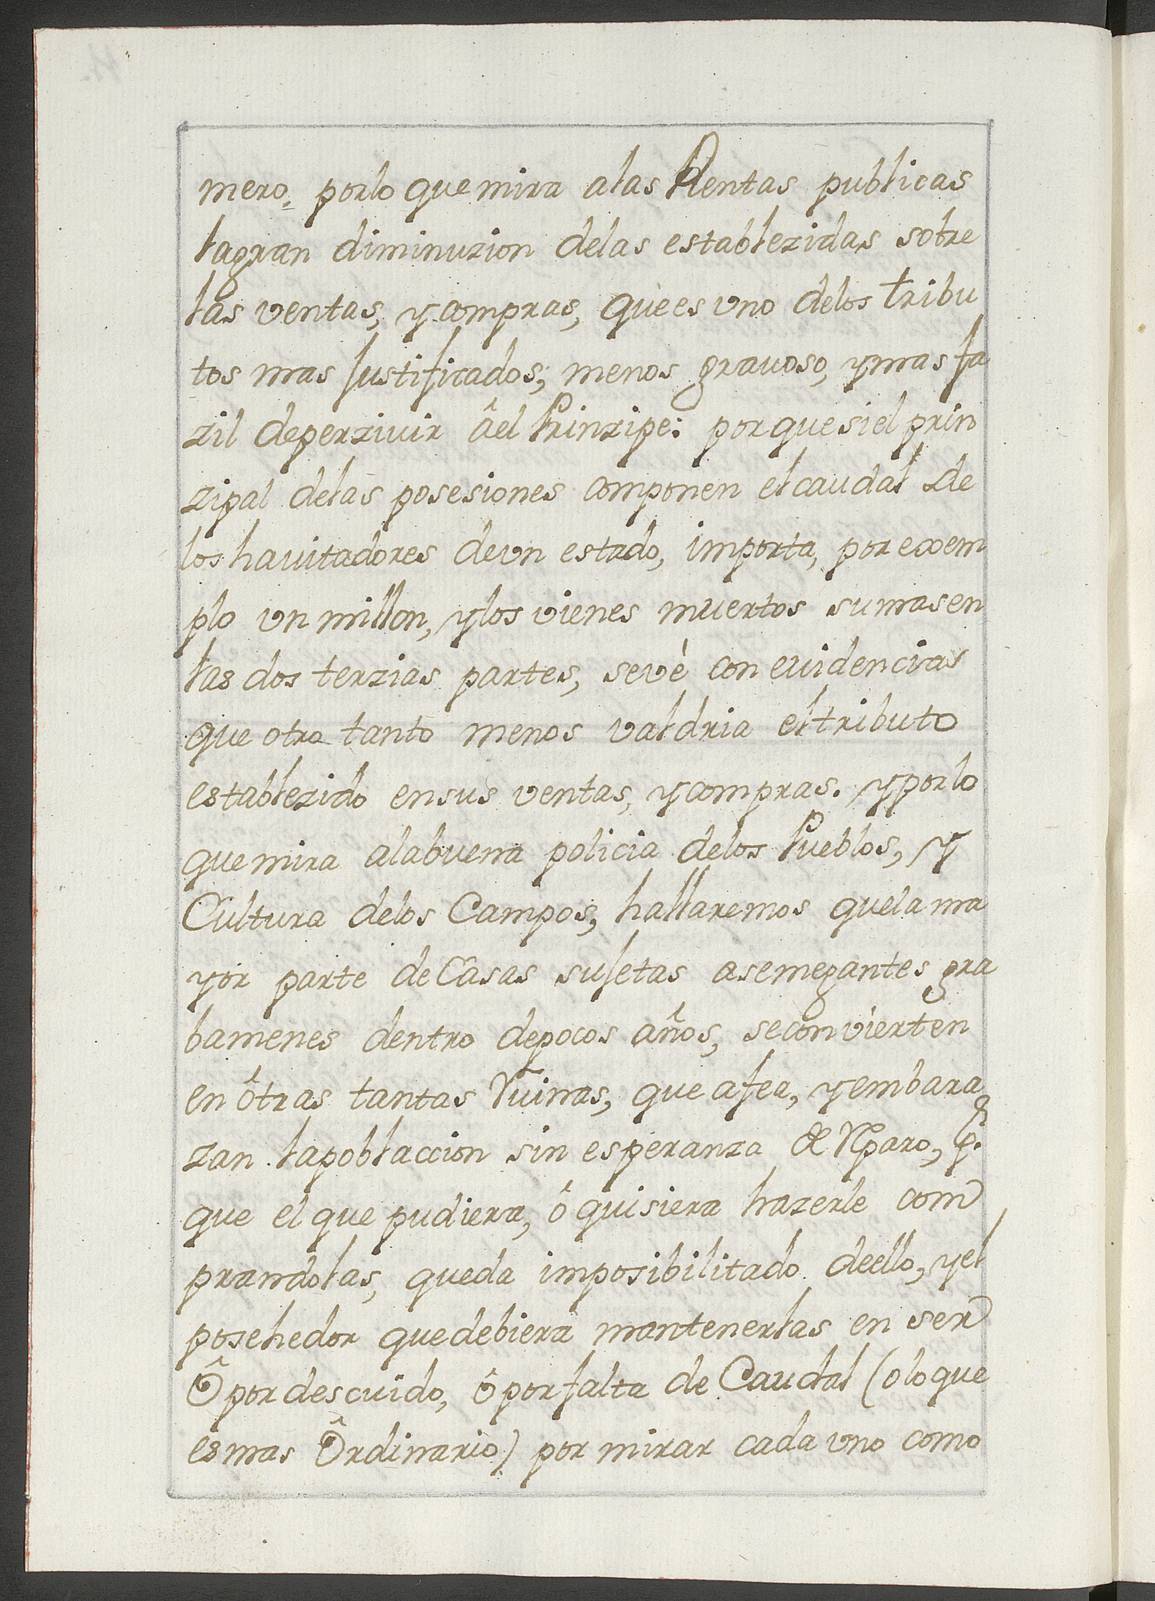 mero, por lo que mira a las Rentas publicas
la gran diminuzion de las establezidas sobre
las ventas, y compras, que es vno de los tribu
tos mas Justificados; menos gravoso, y mas fa
zil de perzivir âel Prinzipe: por que si el prin
zipal de las posesiones componen el caudal de
los havitadores de vn estado, importa, por exem
plo vn millon, y los vienes muertos sumasen
las dos terzias partes, se vè con evidencia
que otro tanto menos valdria el tributo
establezido en sus ventas, y compras. y por lo
que mira a la buena policia de los Pueblos, y
Cultura de los Campos, hallaremos que la ma
yor parte de Casas sujetas a semegantes gra
bamenes dentro de pocos años, se convierten
en ôtras tantas Ruinas, que afea, y embara
zan la poblaccion sin esperanza de Rparo, p.r
que el que pudiera, ô quisiera hazerle com
prandolas, queda imposibilitado de ello, y el
posehedor que debiera mantenerlas en ser
Ô por descuido, ô por falta de Caudal (o lo que
es mas Ôrdinario) por mirar cada vno como